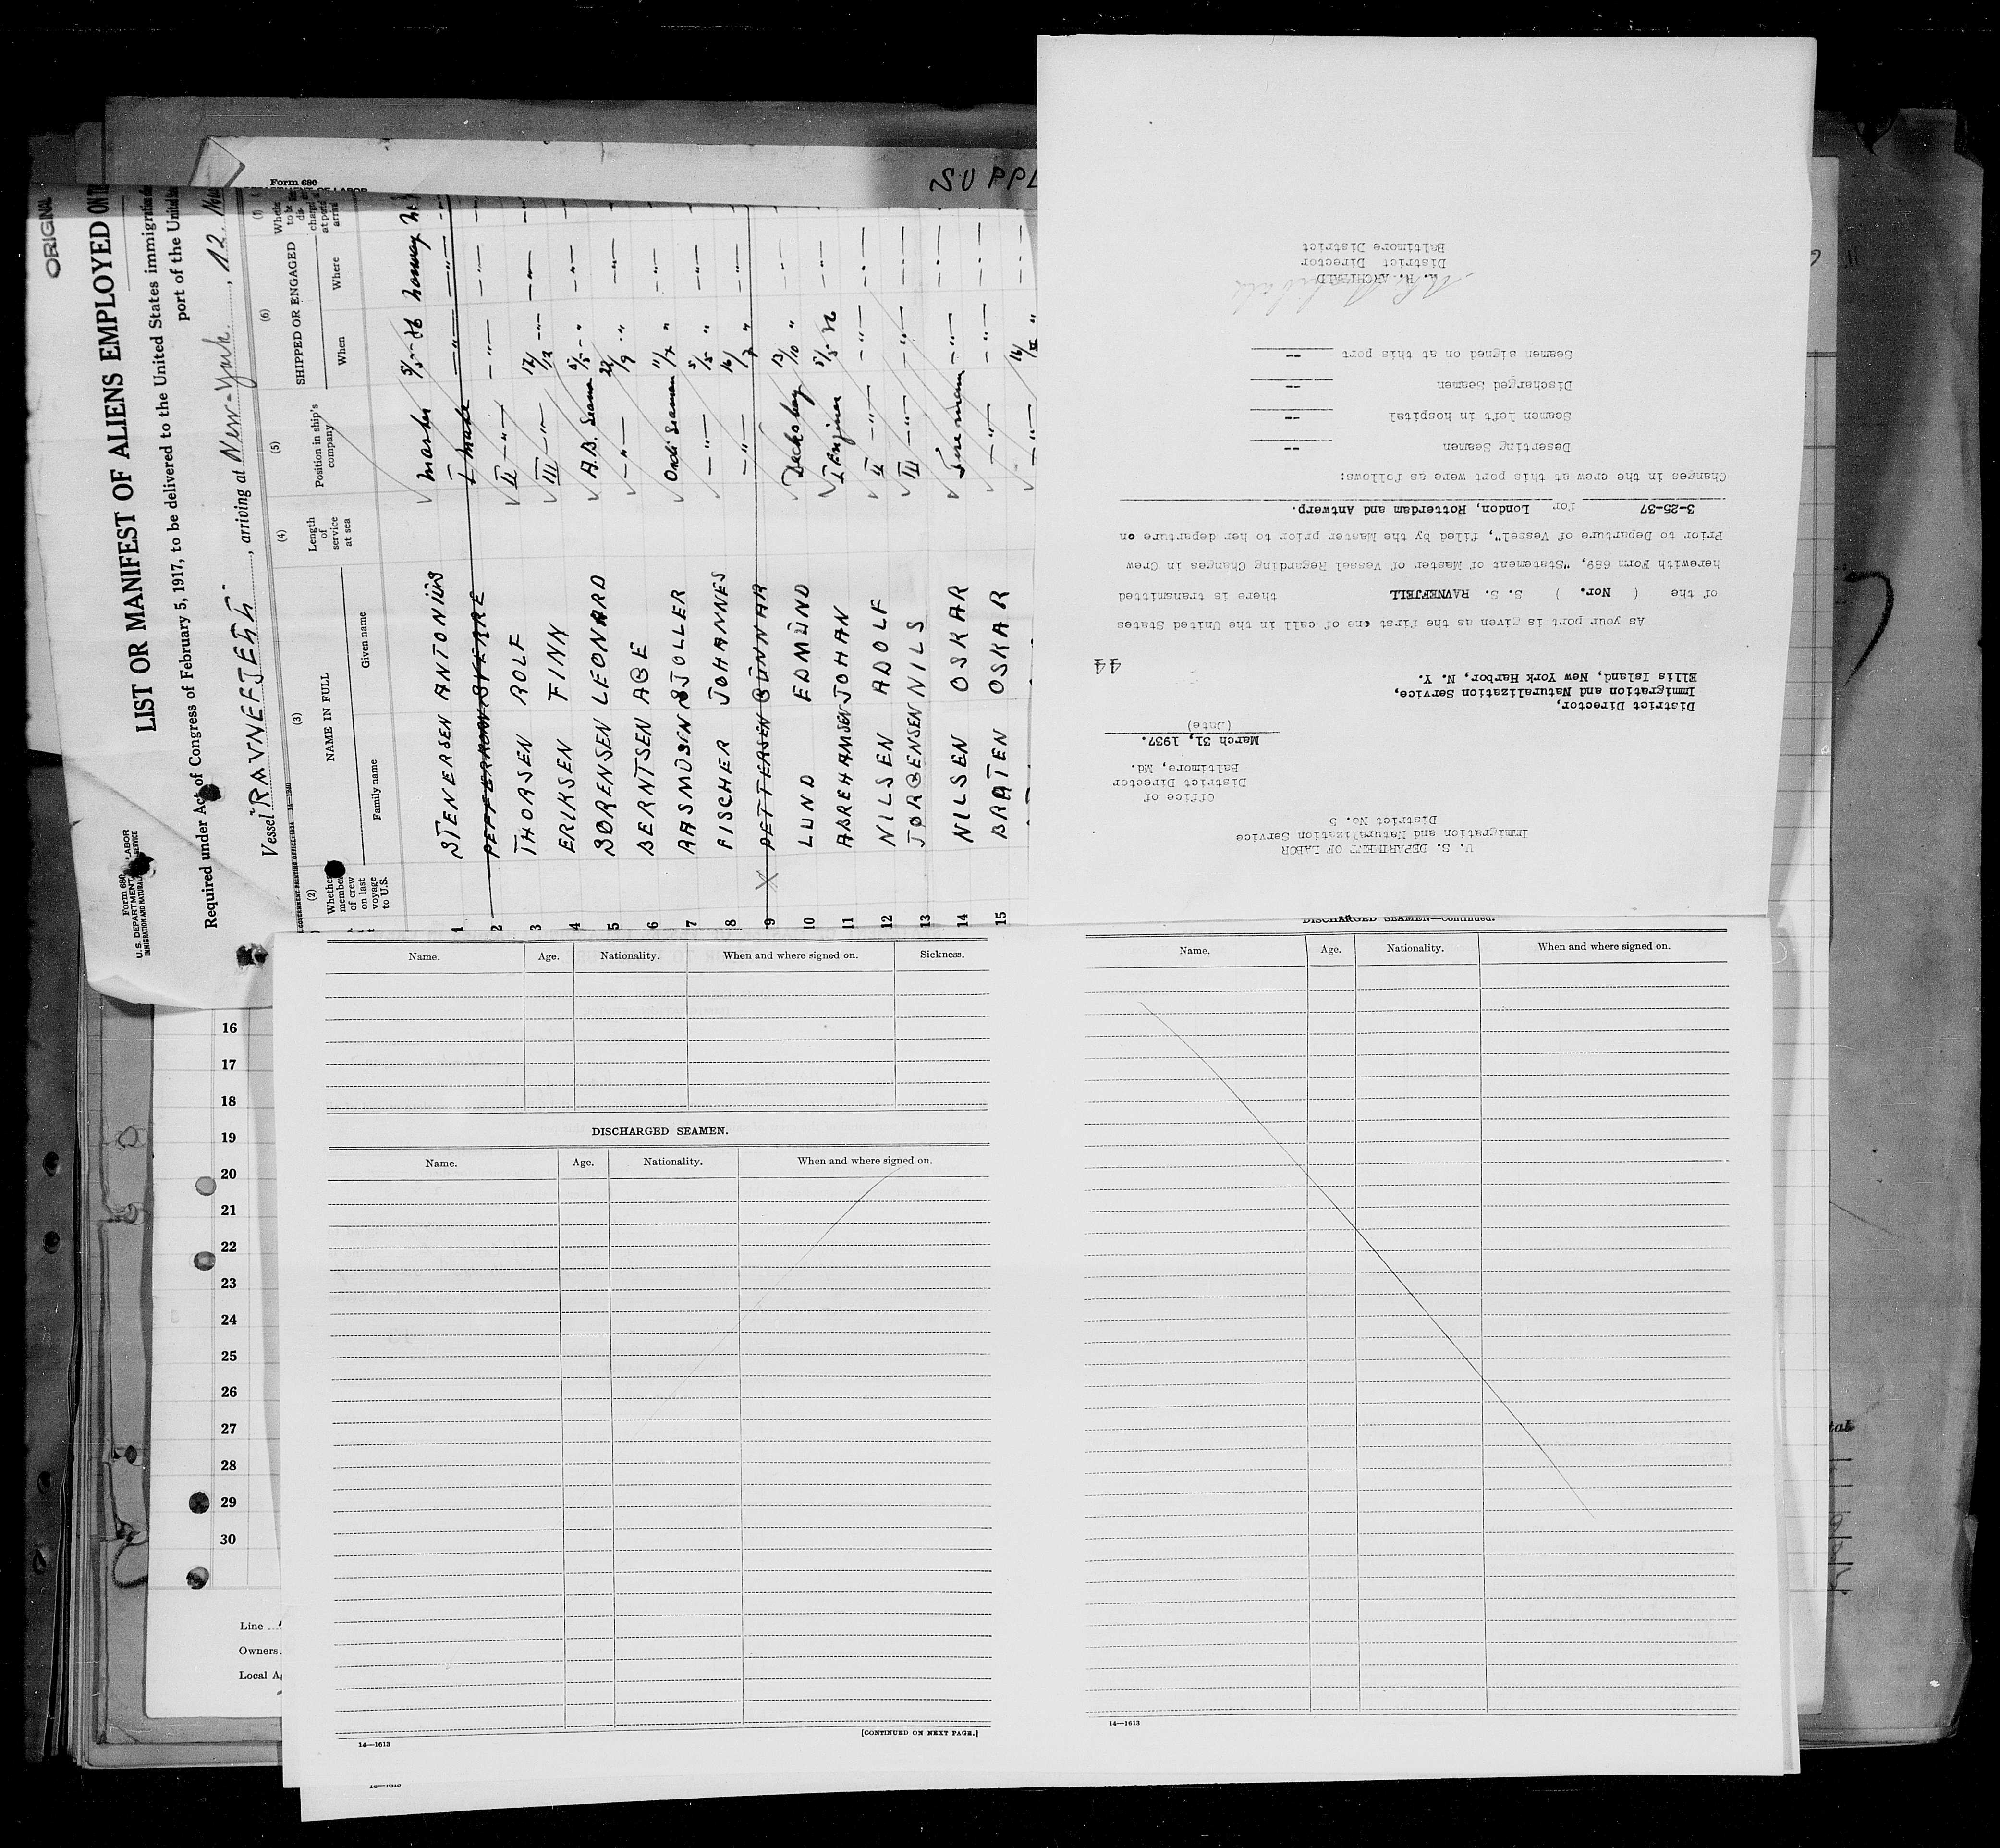 ORIGINAL
Form 680
U. S. DEPARTMENT OF LABOR
IMMIGRATION AND NATURALIZATION SERVICE
LIST OR MANIFEST OF ALIENS EMPLOYED ON
Required under Act of Congress of February 5, 1917, to be delivered to the United States immigration
port of the United
Vessel "RAVNEFJELL", arriving at New-York, 12.
(2) (3) (4) (5) (6) (7)
Whether member of crew on last voyage to U.S.
NAME IN FULL
Family name Given name
Length of service at sea
Position in ship's company
SHIPPED OR ENGAGED
When Where
1 STENERSEN ANTONIUS Master 5/5-36 Norway
2 SVERRE I Mate —"— —"—
3 THORSEN ROLF II —"— —"— —"—
4 ERIKSEN FINN III —"— 12/12 —"— —"—
5 SØRENSEN LEONARD A.B. Seam 5/5 - " —"—
6 BERNTSEN AGE —"— 22/9 " —"—
7 RASMUSEN STOLLER Ordi Seaman 11/7 " —"—
8 FISCHER JOHANNES —"— 5/5 " —"—
9 X PETTERSEN GUNNAR —"— 16/7 " —"—
10 LUND EDMUND Decksboy 13/10 " —"—
11 ABREHAMSEN JOHAN I Enginer 5/5 36 —"—
12 NILSEN ADOLF II —"— —"— —"—
13 JØRGENSEN NILS III —"— —"— —"—
14 NILSEN OSKAR —"— —"—
15 BRATEN OSKAR —"— —"— —"—
Form 680
SUPPL
U. S. DEPARTMENT OF LABOR
Immigration and Naturalization Service
District No. 5
Office of
District Director
Baltimore, Md.
March 31, 1937.
(Date)
District Director,
Immigration and Naturalization Service,
Ellis Island, New York Harbor, N. Y.
44
As your port is given as the first one of call in the United States
of the ( Nor. ) S. S. RAVNEFJELL there is transmitted
herewith Form 689, "Statement of Master of Vessel Regarding Changes in Crew
Prior to Departure of Vessel", filed by the Master prior to her departure on
3-25-37 for London, Rotterdam and Antwerp.
Changes in the crew at this port were as follows:
Deserting Seamen --
Seamen left in hospital --
Discharged Seamen --
Seamen signed on at this port --
W. R. ARCHIBALD
District Director
Baltimore District
Name. Age. Nationality. When and where signed on. Sickness.
DISCHARGED SEAMEN.
Name. Age. Nationality. When and where signed on.
[CONTINUED ON NEXT PAGE.]
14—1613
DISCHARGED SEAMEN—Continued.
Name. Age. Nationality. When and where signed on.
14—1613
16
17
18
19
20
21
22
23
24
25
26
27
28
29
30
Line
Owners
Local A